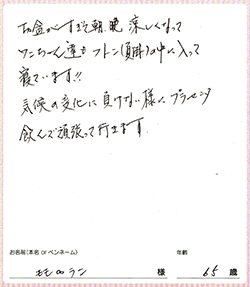 お盆がすぎて朝、晩 涼しくなって
ワンちゃん達もフトン(夏掛)の中に入って
寝ています!!
気候の変化に負けない様に、プラセンタ
飲んで頑張って行きます。
お名前(本名 or ペンネーム)
年齢
もも∞ラン 様 65 歳